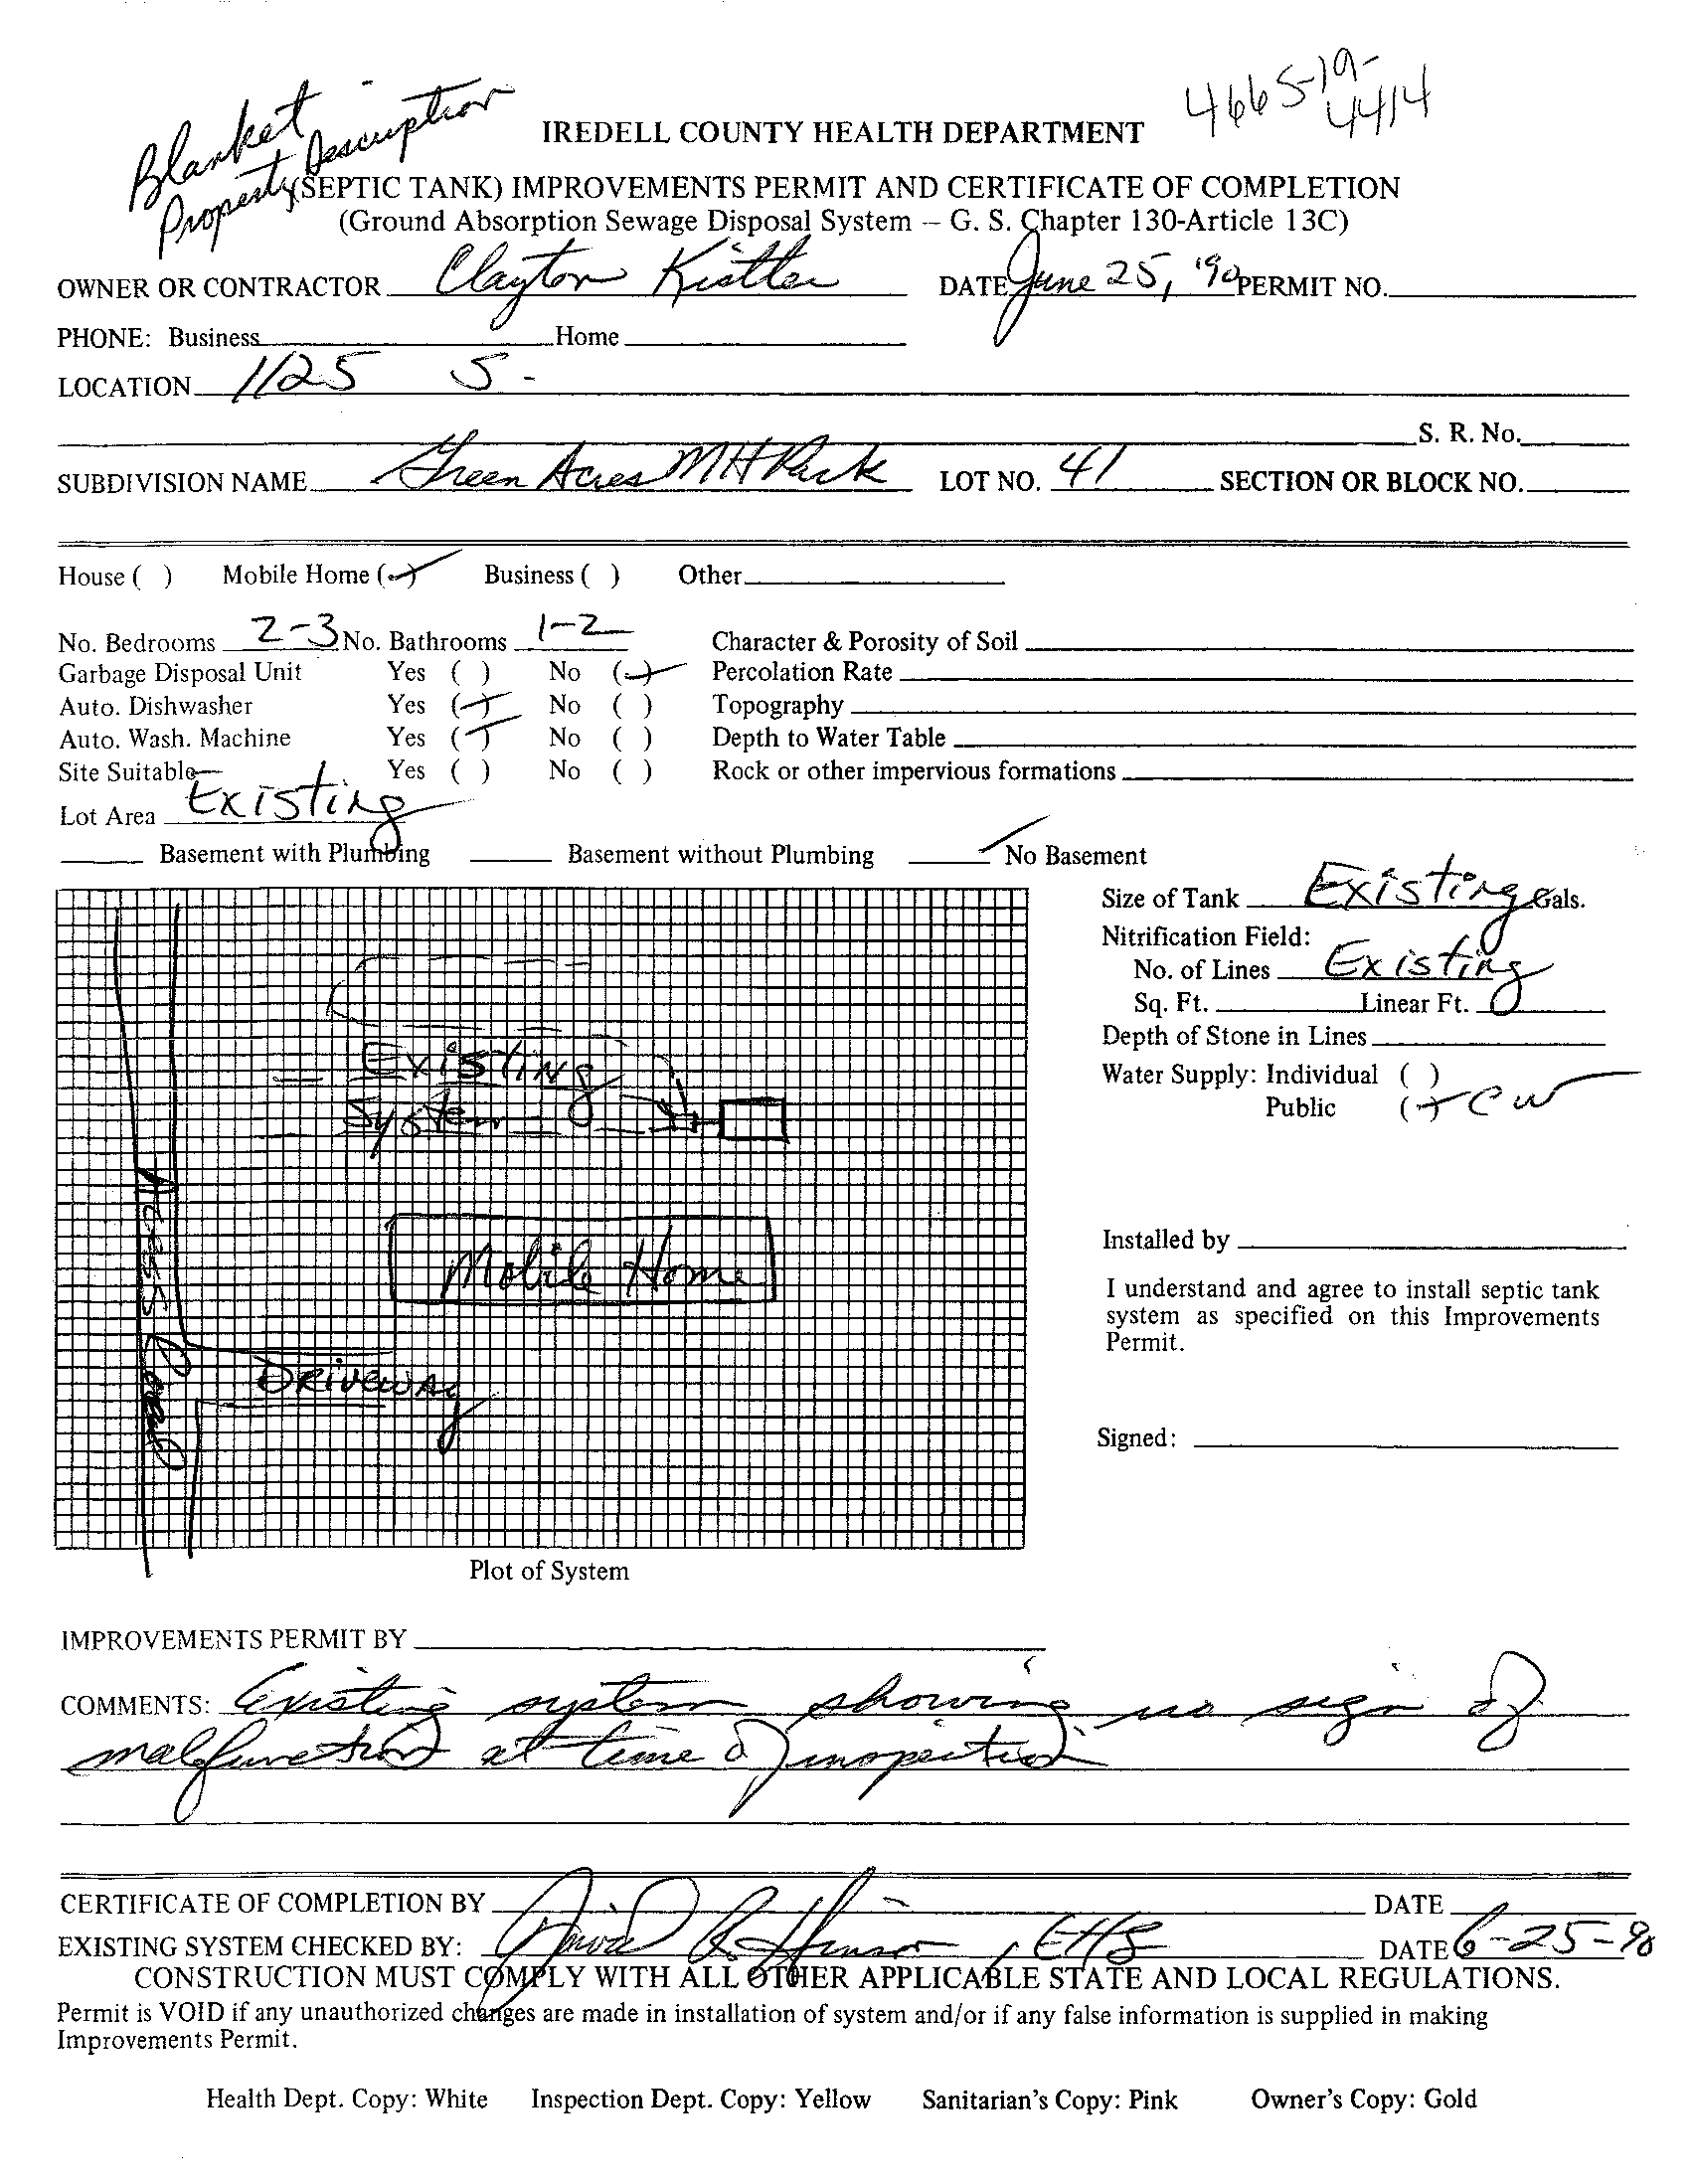 4665-19-
4414
Blanket
Property Description
IREDELL COUNTY HEALTH DEPARTMENT
(SEPTIC TANK) IMPROVEMENTS PERMIT AND CERTIFICATE OF COMPLETION
(Ground Absorption Sewage Disposal System – G. S. Chapter 130-Article 13C)
OWNER OR CONTRACTOR Clayton DATE June 25, '90 PERMIT NO.
PHONE: Business Home
LOCATION 1125 S-
S. R. No.
SUBDIVISION NAME Green Acres MH Park LOT NO. 41 SECTION OR BLOCK NO.
House ( ) Mobile Home (✓) Business ( ) Other
No. Bedrooms 2-3 No. Bathrooms 1-2 Character & Porosity of Soil
Garbage Disposal Unit Yes ( ) No (✓) Percolation Rate
Auto. Dishwasher Yes (✓) No ( ) Topography
Auto. Wash. Machine Yes (✓) No ( ) Depth to Water Table
Site Suitable Yes ( ) No ( ) Rock or other impervious formations
Lot Area Existing
Basement with Plumbing Basement without Plumbing ✓ No Basement
Size of Tank Existing Gals.
Nitrification Field:
No. of Lines Existing
Sq. Ft. Linear Ft.
Depth of Stone in Lines
Water Supply: Individual ( )
Public (✓) CW
Existing
System
Access Road
Mobile Home
Driveway
Installed by
I understand and agree to install septic tank
system as specified on this Improvements
Permit.
Signed:
Plot of System
IMPROVEMENTS PERMIT BY
COMMENTS: Existing system showing no sign of
malfunction at time of inspection
CERTIFICATE OF COMPLETION BY DATE
EXISTING SYSTEM CHECKED BY: David R. , EHS DATE 6-25-90
CONSTRUCTION MUST COMPLY WITH ALL OTHER APPLICABLE STATE AND LOCAL REGULATIONS.
Permit is VOID if any unauthorized changes are made in installation of system and/or if any false information is supplied in making
Improvements Permit.
Health Dept. Copy: White Inspection Dept. Copy: Yellow Sanitarian's Copy: Pink Owner's Copy: Gold